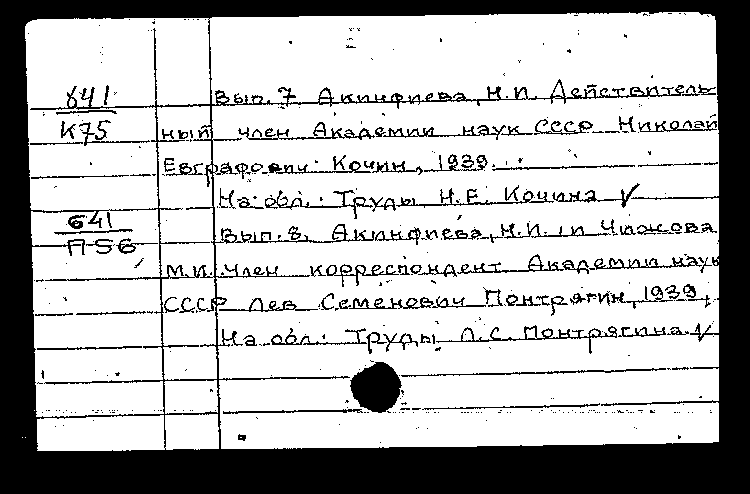 641
К75
Вып. 7. Акинфиева, Н.И. Действитель-
ный член Академии наук СССР Николай
Евграфович Кочин, 1939.
На обл.: Труды Н.Е. Кочина ✓
641
П56
Вып. 8. Акинфиева, Н.И. и Чижова
М.И. Член корреспондент Академии наук
СССР Лев Семенович Понтрягин, 1939,
На обл.: Труды Л.С. Понтрягина. ✓